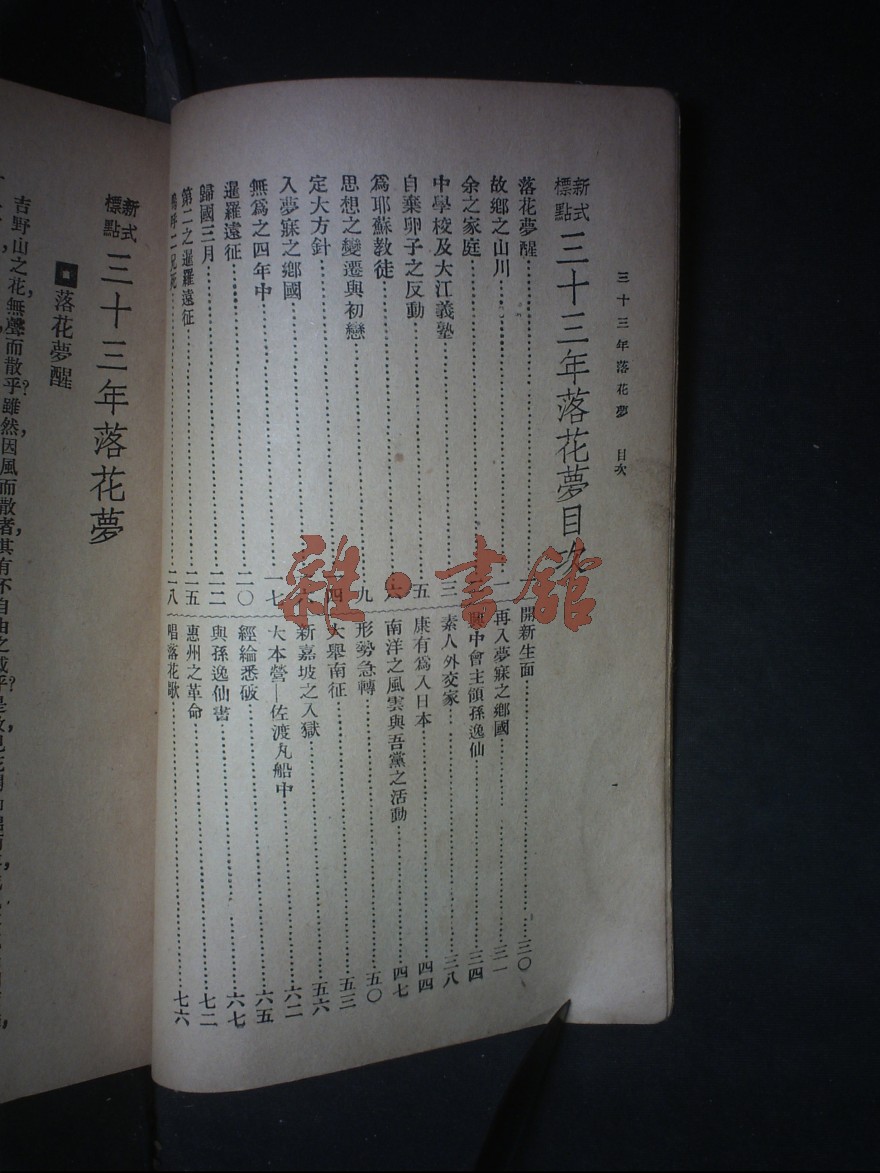 三十三年落花夢 目次
新式標點 三十三年落花夢目次
落花夢醒
故鄉之山川……一
余之家庭
中學校及大江義塾……三
自棄卵子之反動……五
爲耶蘇教徒……六
思想之變遷與初戀……九
定大方針……四
入夢寐之鄉國……六
無爲之四年中……一七
暹羅遠征……二〇
歸國三月……二二
第二之暹羅遠征……二五
嗚呼二兄死……二八
開新生面……三〇
再入夢寐之鄉國……三一
興中會主領孫逸仙……三四
素人外交家……三八
康有爲入日本……四四
南洋之風雲與吾黨之活動……四七
形勢急轉……五〇
大舉南征……五三
新嘉坡之入獄……五六
大本營—佐渡丸船中……六二
經綸悉破……六五
與孫逸仙書……六七
惠州之革命……七二
唱落花歌……七六
雜·書館
新式標點 三十三年落花夢
落花夢醒
吉野山之花，無聲而散乎？雖然，因風而散者，其有不自由之感乎？是故